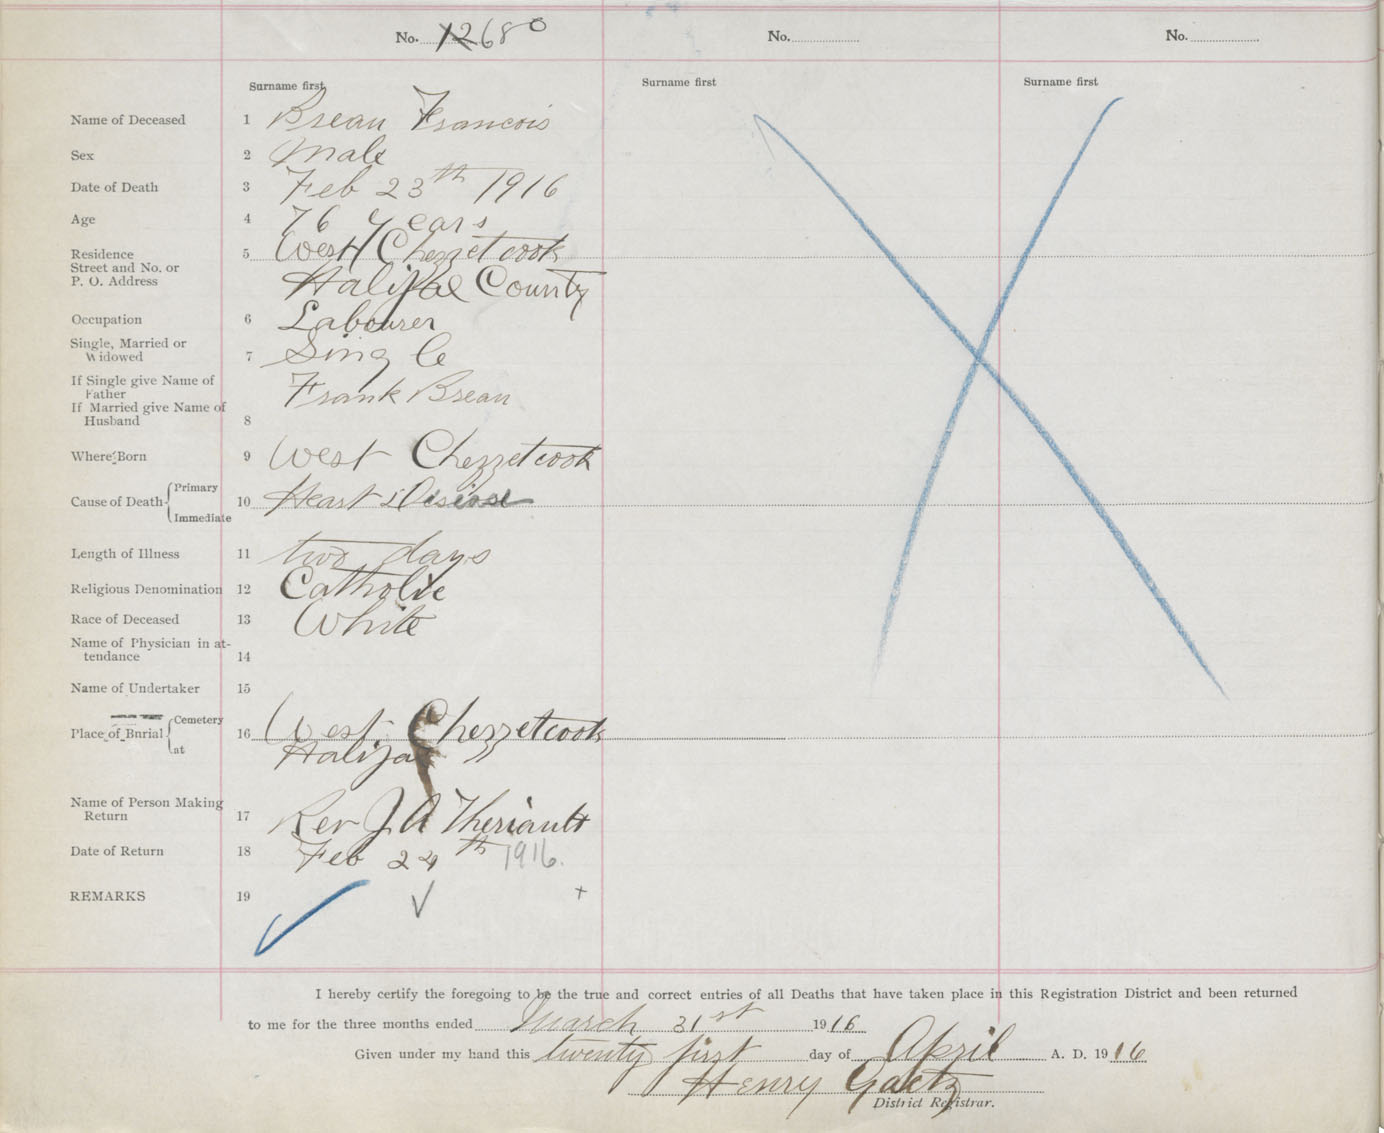 No. 12680
No.
No.
Surname first
Surname first
Surname first
Name of Deceased 1 Breau Francois
Sex 2 Male
Date of Death 3 Feb 23th 1916
Age 4 76 years
Residence 5 West Chezzetcook
Street and No. or
P. O. Address Halifax County
Occupation 6 Labourer
Single, Married or
Widowed 7 Single
If Single give Name of
Father Frank Breau
If Married give Name of
Husband 8
Where Born 9 West Chezzetcook
Primary
Cause of Death 10 Heart Disease
Immediate
Length of Illness 11 two days
Religious Denomination 12 Catholic
Race of Deceased 13 White
Name of Physician in at-
tendance 14
Name of Undertaker 15
Cemetery
Place of Burial 16 West Chezzetcook
at Halifax "
Name of Person Making
Return 17 Rev J A Theriault
Date of Return 18 Feb 24th 1916.
REMARKS 19
I hereby certify the foregoing to be the true and correct entries of all Deaths that have taken place in this Registration District and been returned
to me for the three months ended March 31st 1916
Given under my hand this twenty first day of April A. D. 1916
Henry Gaetz
District Registrar.